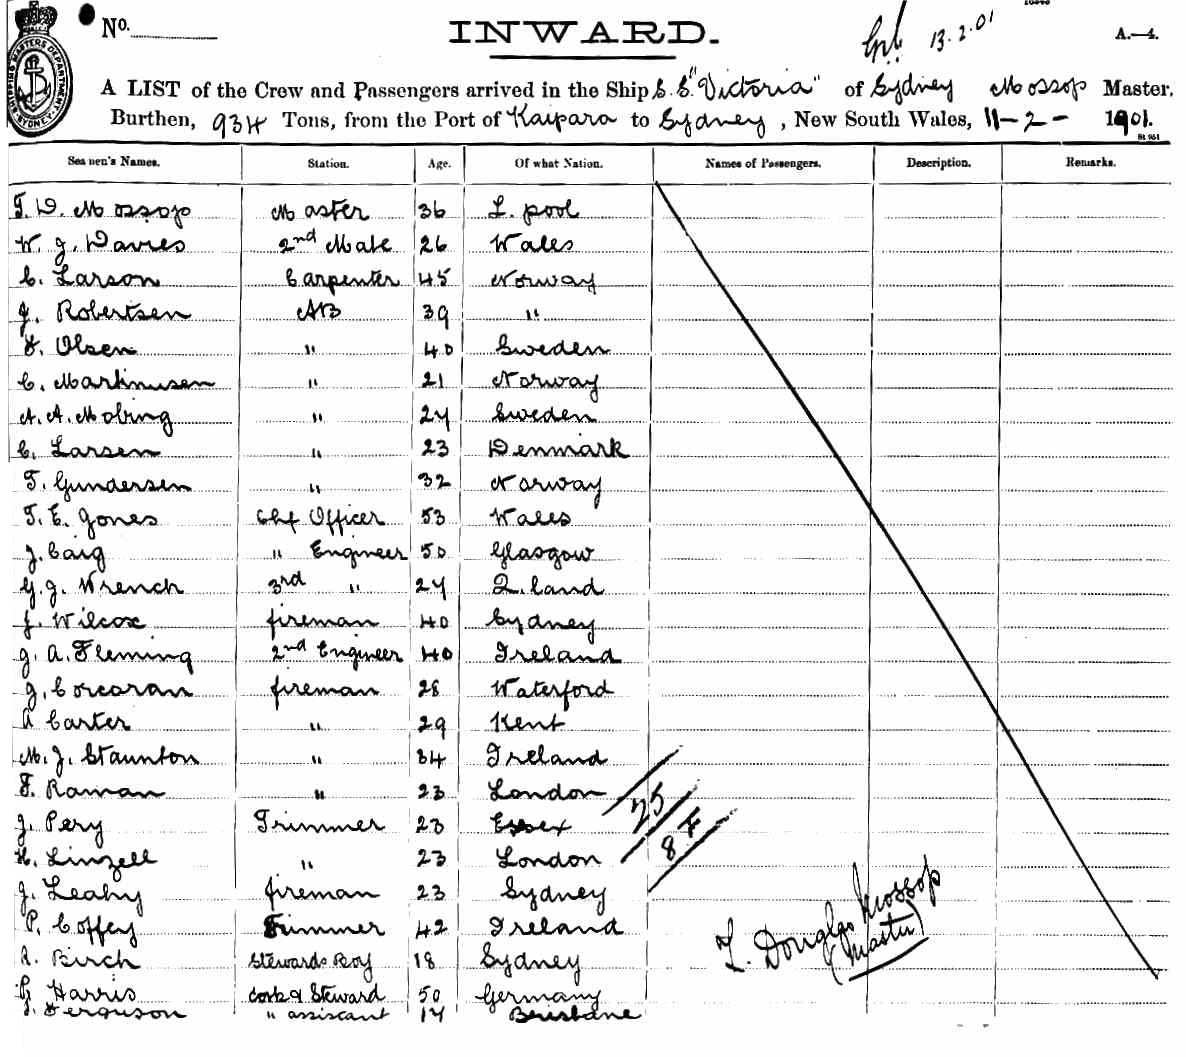 No.
INWARD.
13.2.01
A.—4.
SHIPPING MASTERS DEPARTMENT SYDNEY
A LIST of the Crew and Passengers arrived in the Ship S.S. "Victoria" of Sydney Mossop Master,
Burthen, 934 Tons, from the Port of Kaipara to Sydney, New South Wales, 11-2-1901.
Seamen's Names. Station. Age. Of what Nation. Names of Passengers. Description. Remarks.
T. D. Mossop Master 36 L. pool
W. J. Davies 2nd Mate 26 Wales
C. Larson Carpenter 45 Norway
J. Robertsen AB 39 "
F. Olsen " 40 Sweden
C. Martinusen " 21 Norway
A. A. Mobring " 24 Sweden
C. Larsen " 23 Denmark
T. Gundersen " 32 Norway
T. E. Jones Chf Officer 53 Wales
J. Caig " Engineer 50 Glasgow
G. J. Wrench 3rd " 24 Q.land
J. Wilcox fireman 40 Sydney
J. A. Fleming 2nd Engineer 40 Ireland
J. Corcoran fireman 28 Waterford
A Carter " 29 Kent
M. J. Staunton " 34 Ireland
F. Raman " 23 London
25
J. Pery Trimmer 23 Essex
8 F
H. Linzell " 23 London
J. Leahy fireman 23 Sydney
P. Coffey Trimmer 42 Ireland
T. Douglas Mossop
(Master)
A. Birch Stewards Boy 18 Sydney
G Harris Cook & Steward 50 Germany
J. Ferguson " assistant 17 Brisbane